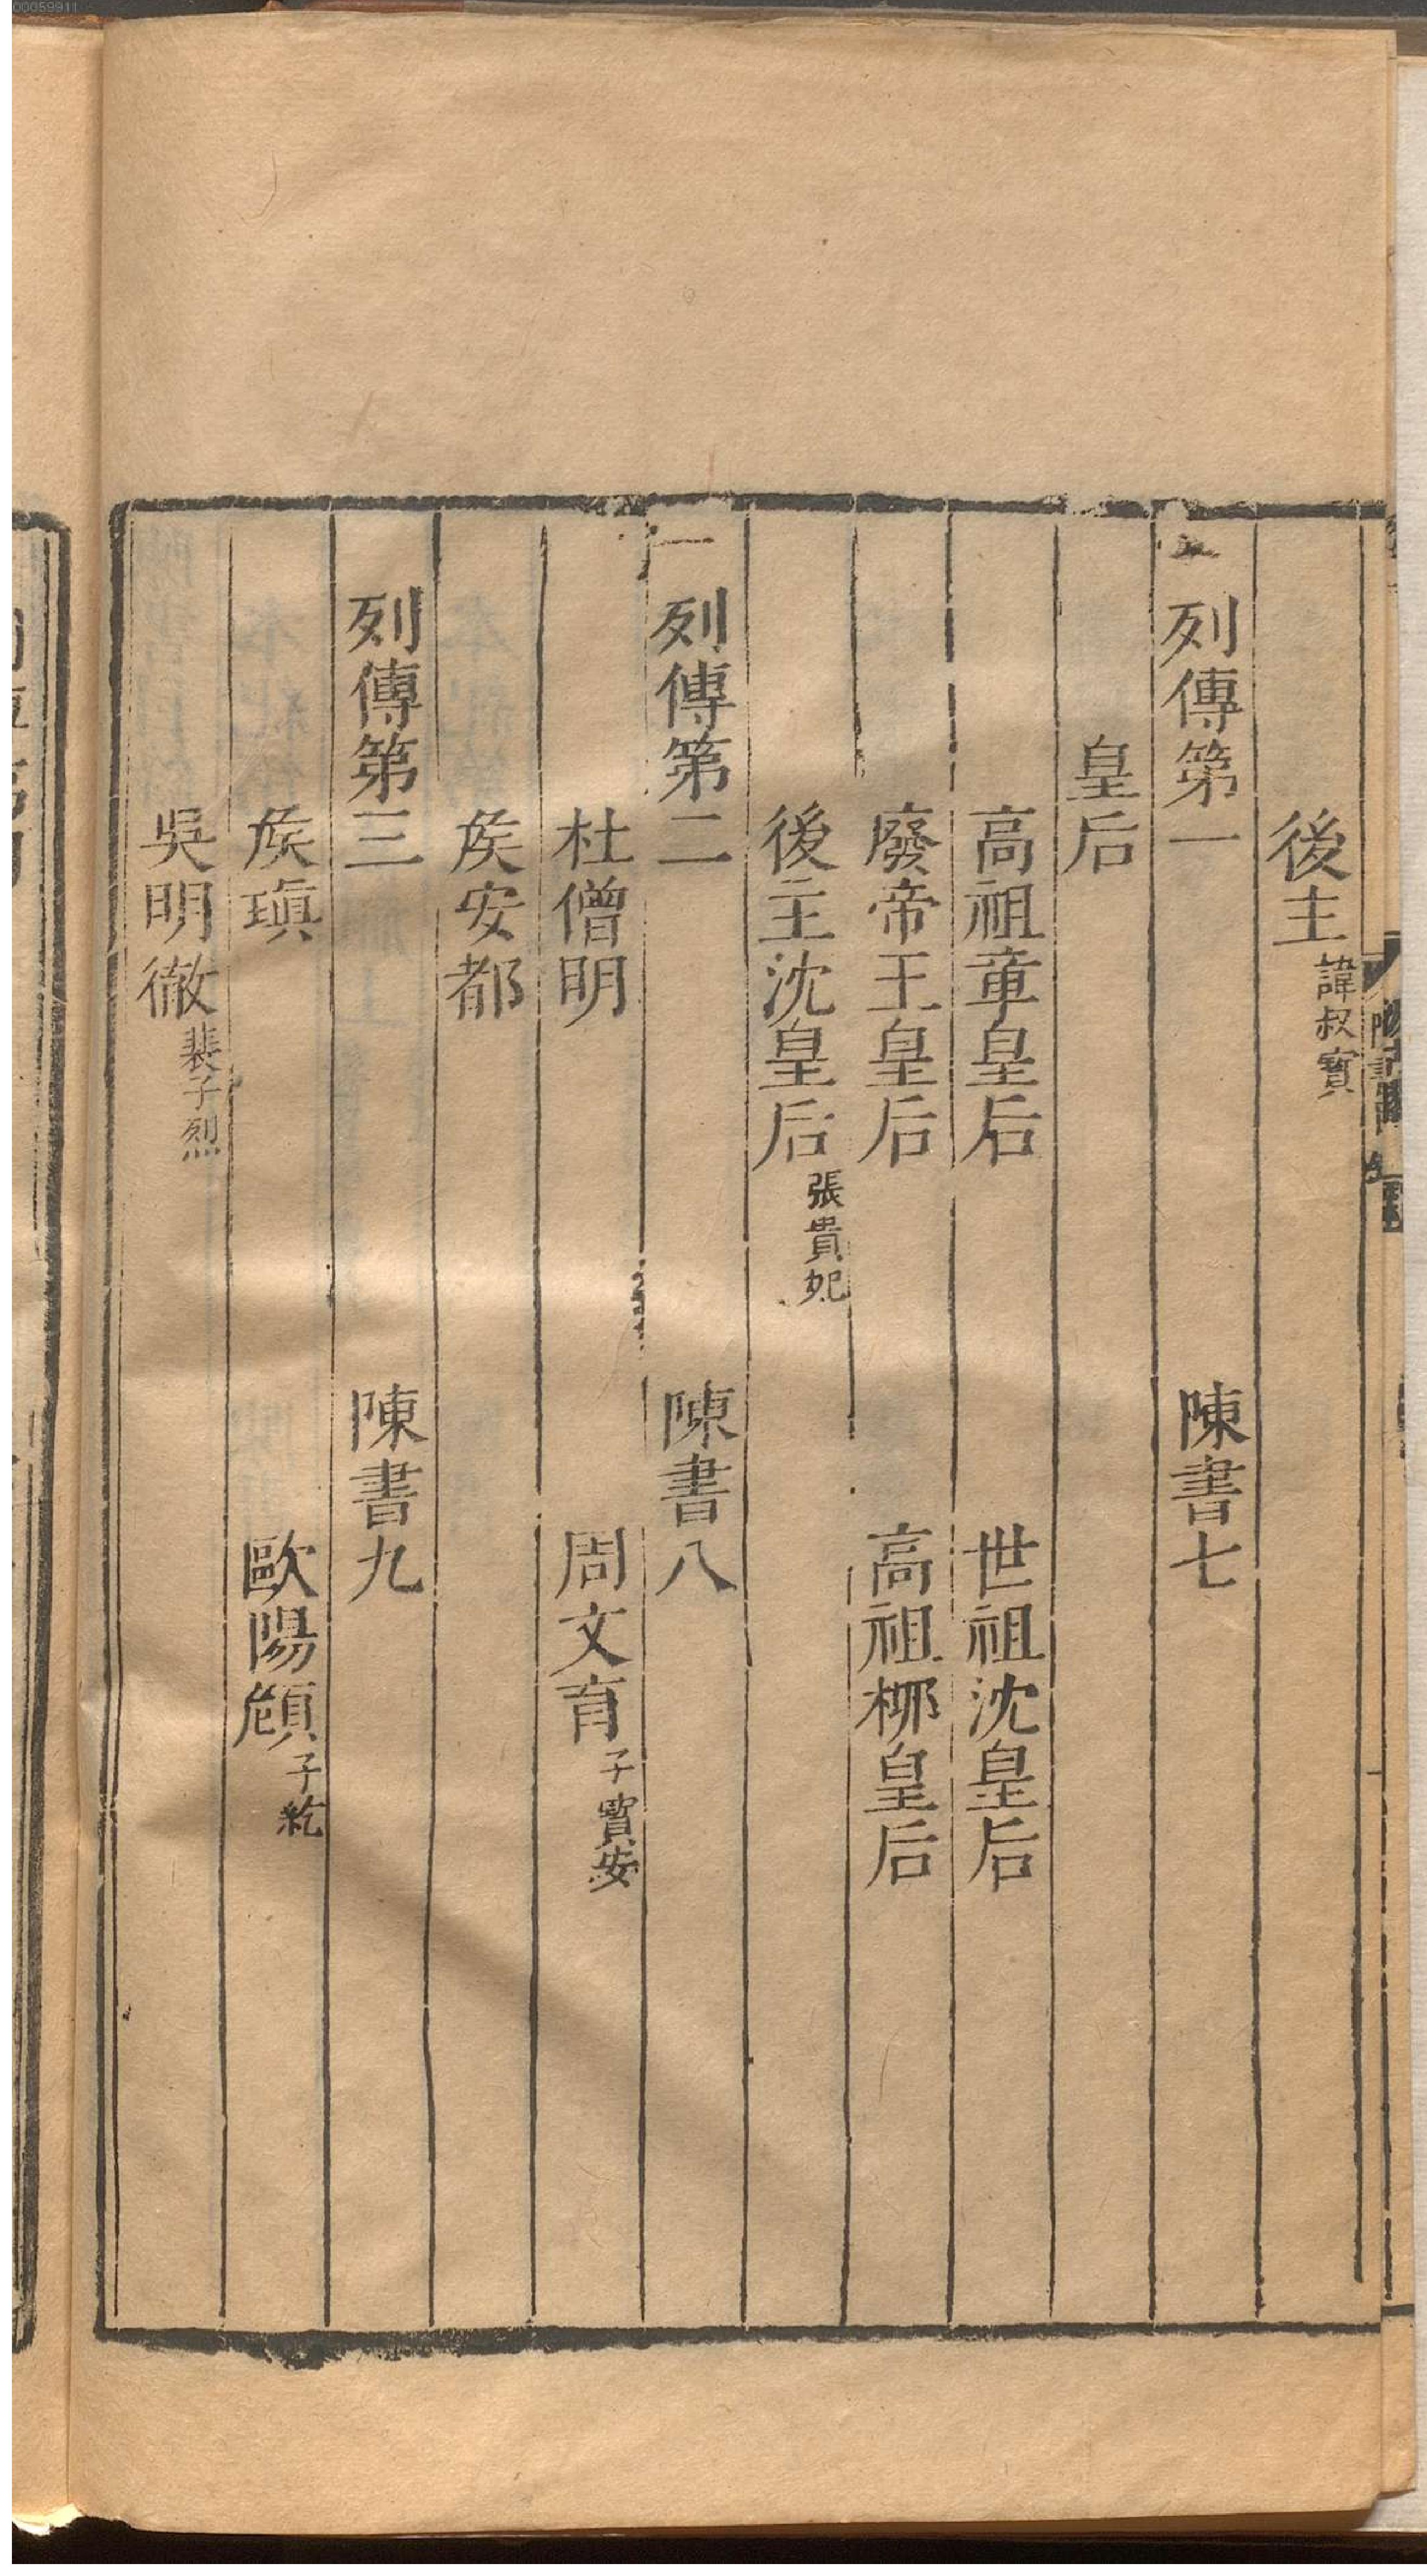 後主 諱叔寳
列傳第一 陳書七
皇后
高祖章皇后 世祖沈皇后
廢帝王皇后 高祖栁皇后
後主沈皇后 張貴妃
列傳第二 陳書八
杜僧明 周文育 子寳安
矦安都
列傳第三 陳書九
矦瑱 歐陽頠 子紇
吳明徹 裴子烈
00059911